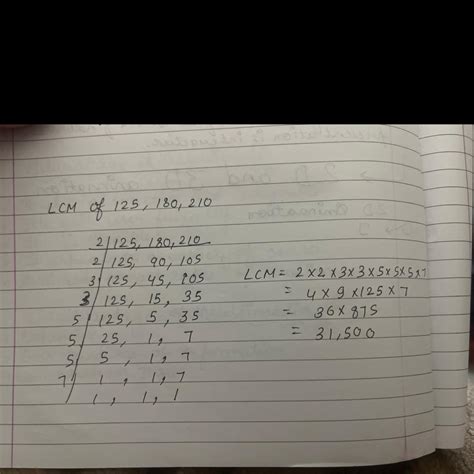 LCM of 125, 180, 210
2 | 125, 180, 210
2 | 125, 90, 105
3 | 125, 45, 105
3 | 125, 15, 35
5 | 125, 5, 35
5 | 25, 1, 7
5 | 5, 1, 7
7 | 1, 1, 7
1, 1, 1
LCM = 2×2×3×3×5×5×5×7
= 4×9×125×7
= 36×875
= 31,500